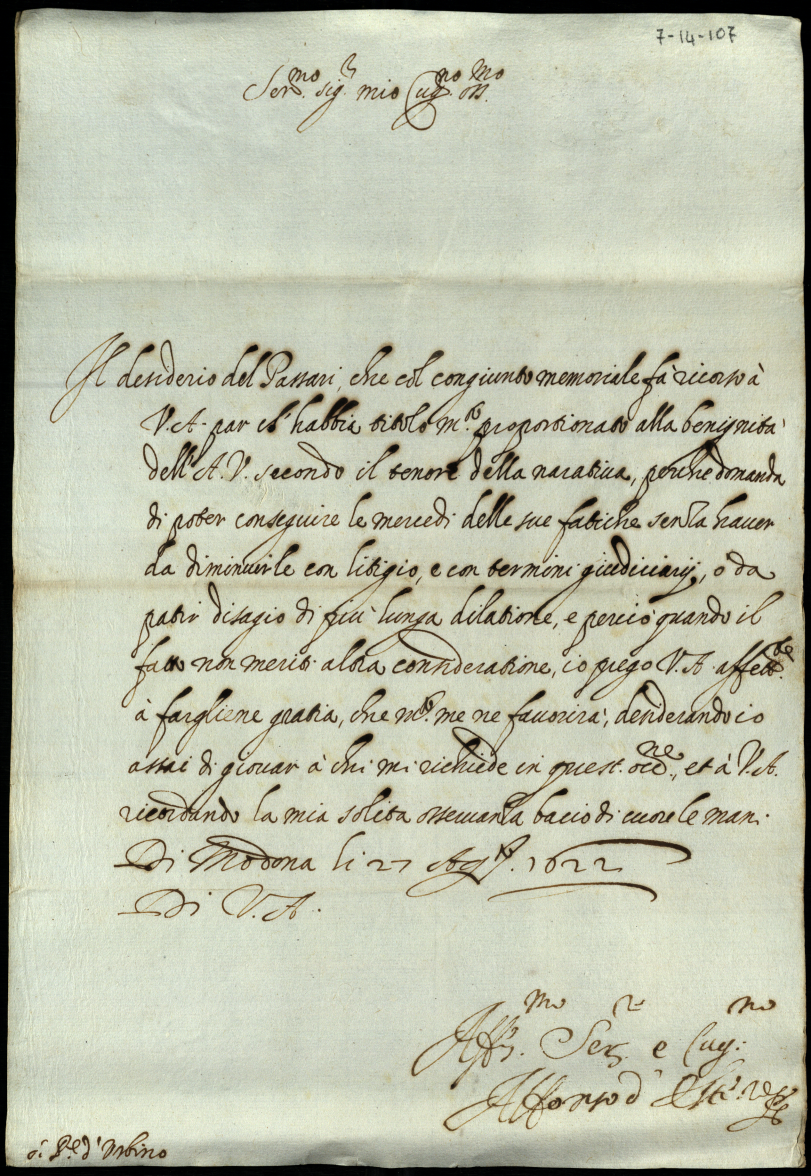 7-14-107
Ser.mo sig.r mio Cug.no oss.mo
Il desiderio del Passari, che col congiunto memoriale fà ricorso à
V.A. par ch'habbia titolo m.to proportionato alla benignità
dell'A.V. secondo il tenore della narativa, perche domanda
di poter conseguire le mercedi delle sue fatiche senza haver
da diminuirle con litigio, e con termini giudiciarij, o da
patir disagio di più lunga dilatione, e perciò quando il
fatto non meriti altra consideratione, io prego V.A. affett.te
à fargliene gratia, che m.to me ne favorirà, desiderando io
assai di giovar à chi mi richiede in quest. occ.ne, et à V.A.
ricordando la mia solita osservanza bacio di cuore le mani.
Di Modona li 27 Ag.to 1622
Di V.A.
Aff.mo Ser.r e Cug.no
Alfonso d'Este
s.r P.e d'Urbino